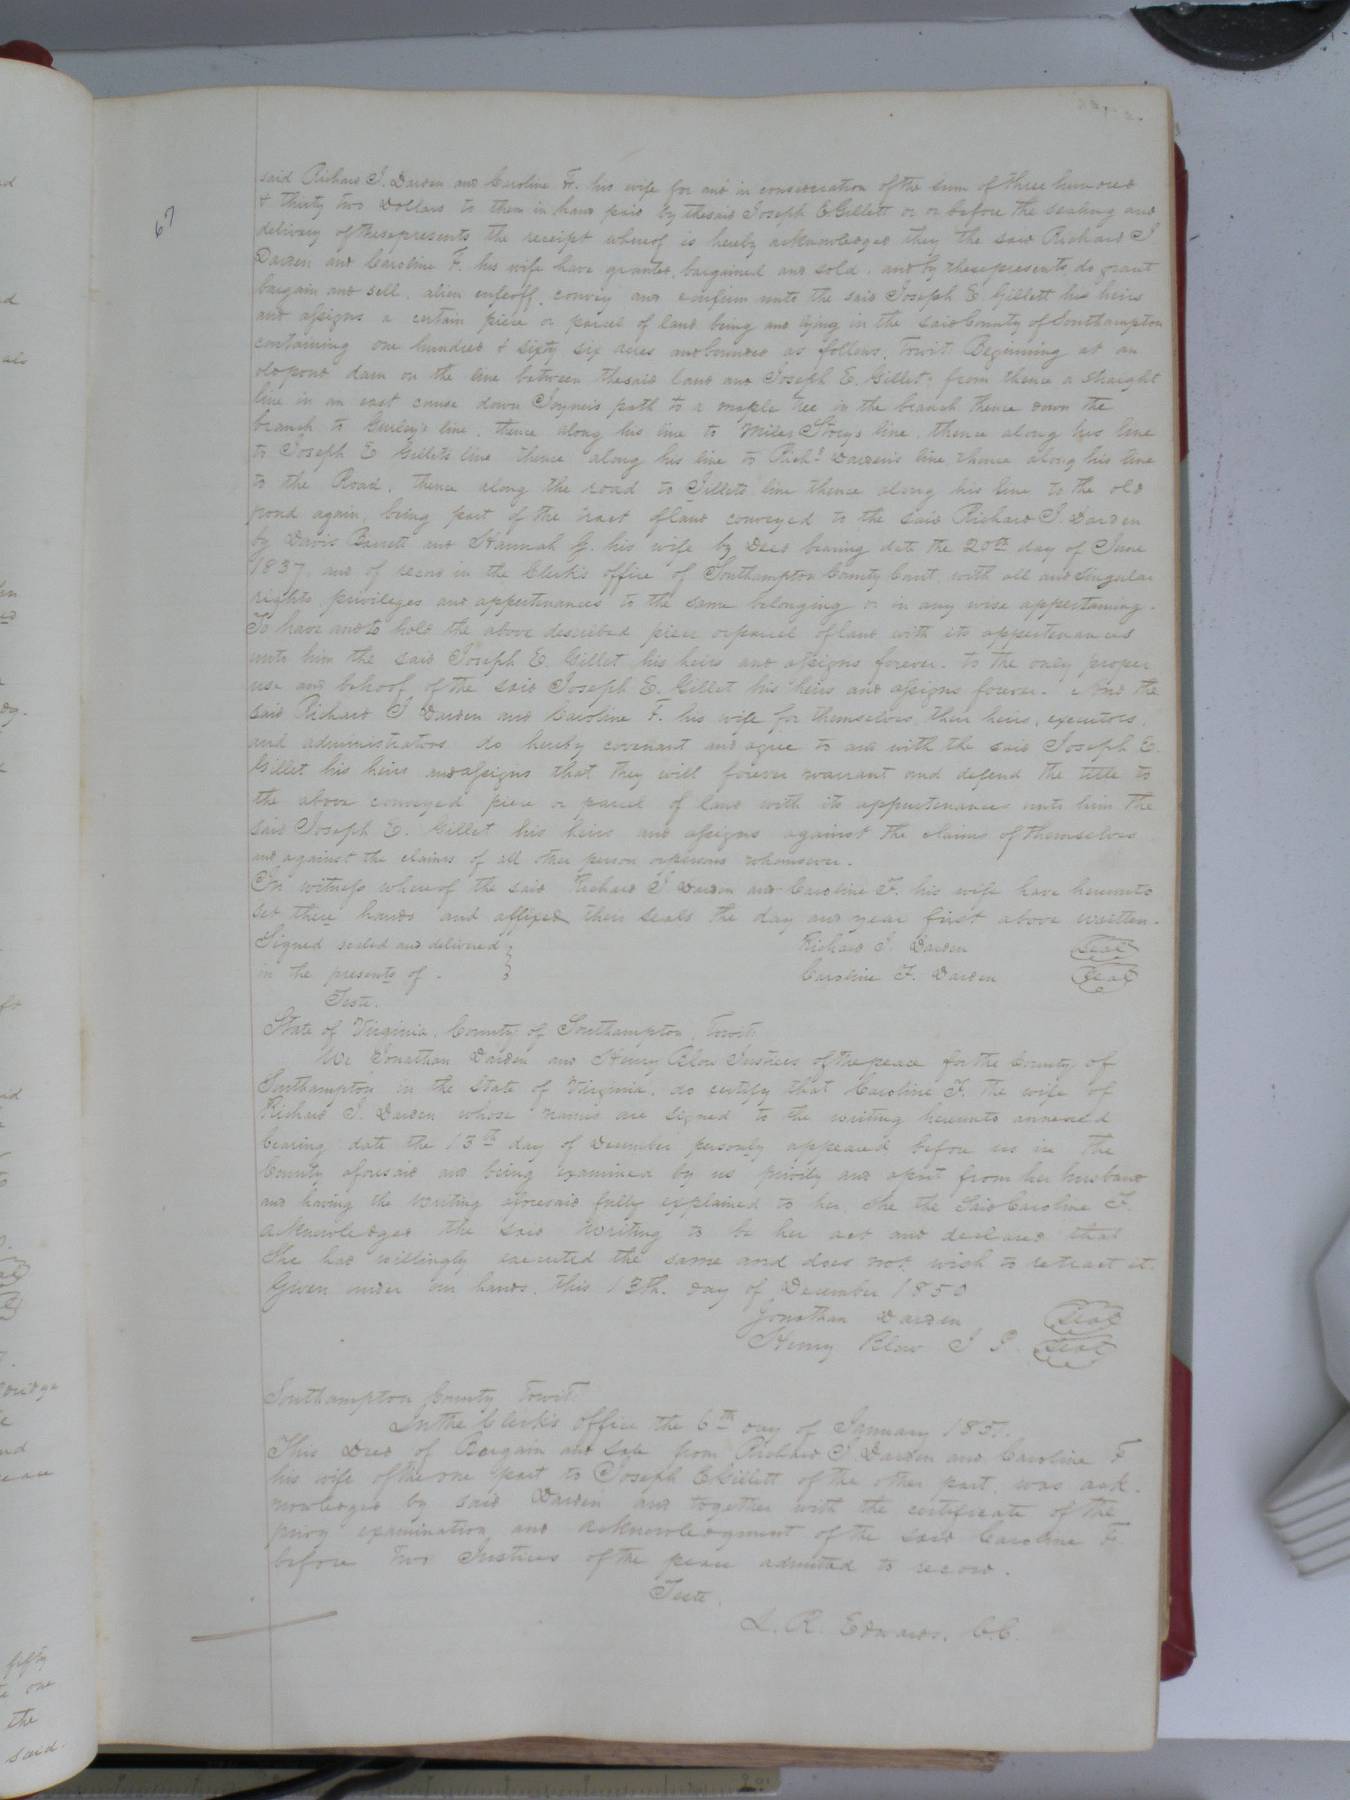 67
said Richard J. Darden and Caroline F. his wife for and in consideration of the sum of three hundred
& thirty two Dollars to them in hand paid by the said Joseph E Gillett or or before the sealing and
delivery of these presents the receipt whereof is hereby acknowledged they the said Richard J
Darden and Caroline F. his wife have granted, bargained and sold. and by these presents do grant
bargain and sell. alien enfeoff, convey and confirm unto the said Joseph E. Gillett his heirs
and assigns a certain piece or parcel of land being and lying in the said County of Southampton
containing one hundred & sixty six acres and bounded as follows, Towit: Beginning at an
old pond dam on the line between the said land and Joseph E. Gillet; from thence a straight
line in an east couse down Joyner's path to a maple tree in the branch thence down the
branch to Gurley's line. thence along his line to Miles Storys line. thence along his line
to Joseph E Gillets line thence along his line to Richd Darden's line thence along his line
to the Road. thence along the road to Gillets line thence along his line to the old
pond again. being part of the tract of land conveyed to the said Richard J. Darden
by Davis Barrett and Hannah G. his wife by Deed bearing date the 20th day of June
1837. and of record in the Clerk's office of Southampton County Court, with all and singular
rights privileges and appertenances to the same belonging or in any wise appertaining.
To have and to hold the above described piece or parcel of land with its appertenances
unto him the said Joseph E. Gillet his heirs and assigns forever. to the only proper
use and behoof of the said Joseph E. Gillet his heirs and assigns forever. And the
said Richard J Darden and Caroline F. his wife for themselves their heirs, executors,
and administrators do hereby covenant and agree to and with the said Joseph E.
Gillet his heirs and assigns that they will forever warrant and defend the title to
the above conveyed piece or parcel of land with its appurtenances unto him the
said Joseph E. Gillet his heirs and assigns against the claims of themselves
and against the claims of all other person or persons whomsoever.
In witness whereof the said Richard J Darden and Caroline F. his wife have hereunto
set there hands and affixed their seals the day and year first above written.
Signed sealed and delivered } Richard J. Darden Seal
in the presents of. Caroline F. Darden Seal
Teste.
State of Virginia, County of Southampton, Towit:
We Jonathan Darden and Henry Blow Justices of the peace for the County of
Southampton in the State of Virginia. do certify that Caroline F. the wife of
Richard J. Darden whose names are signed to the writing hereunto annexed
bearing date the 13th day of December personly appeared before us in the
County aforesaid and being examined by us privily and apart from her husband
and having the writing aforesaid fully explained to her, she the said Caroline F.
acknowledged the said writing to be her act and declared that
She had willingly executed the same and does not wish to retract it.
Given under our hands. this 13th. day of December 1850
Jonathan Darden Seal
Henry Blow J P. Seal
Southampton County Towit:
In the Clerk's office the 6th day of January 1851.
This Deed of Bargain and Sale from Richard J Darden and Caroline F
his wife of the one part to Joseph E Gillett of the other part, was ack-
nowledged by said Darden and together with the certificate of the
privy examination and acknowledgment of the said Caroline F.
before two Justices of the peace admitted to record.
Teste.
L. R. Edwards. C.C.